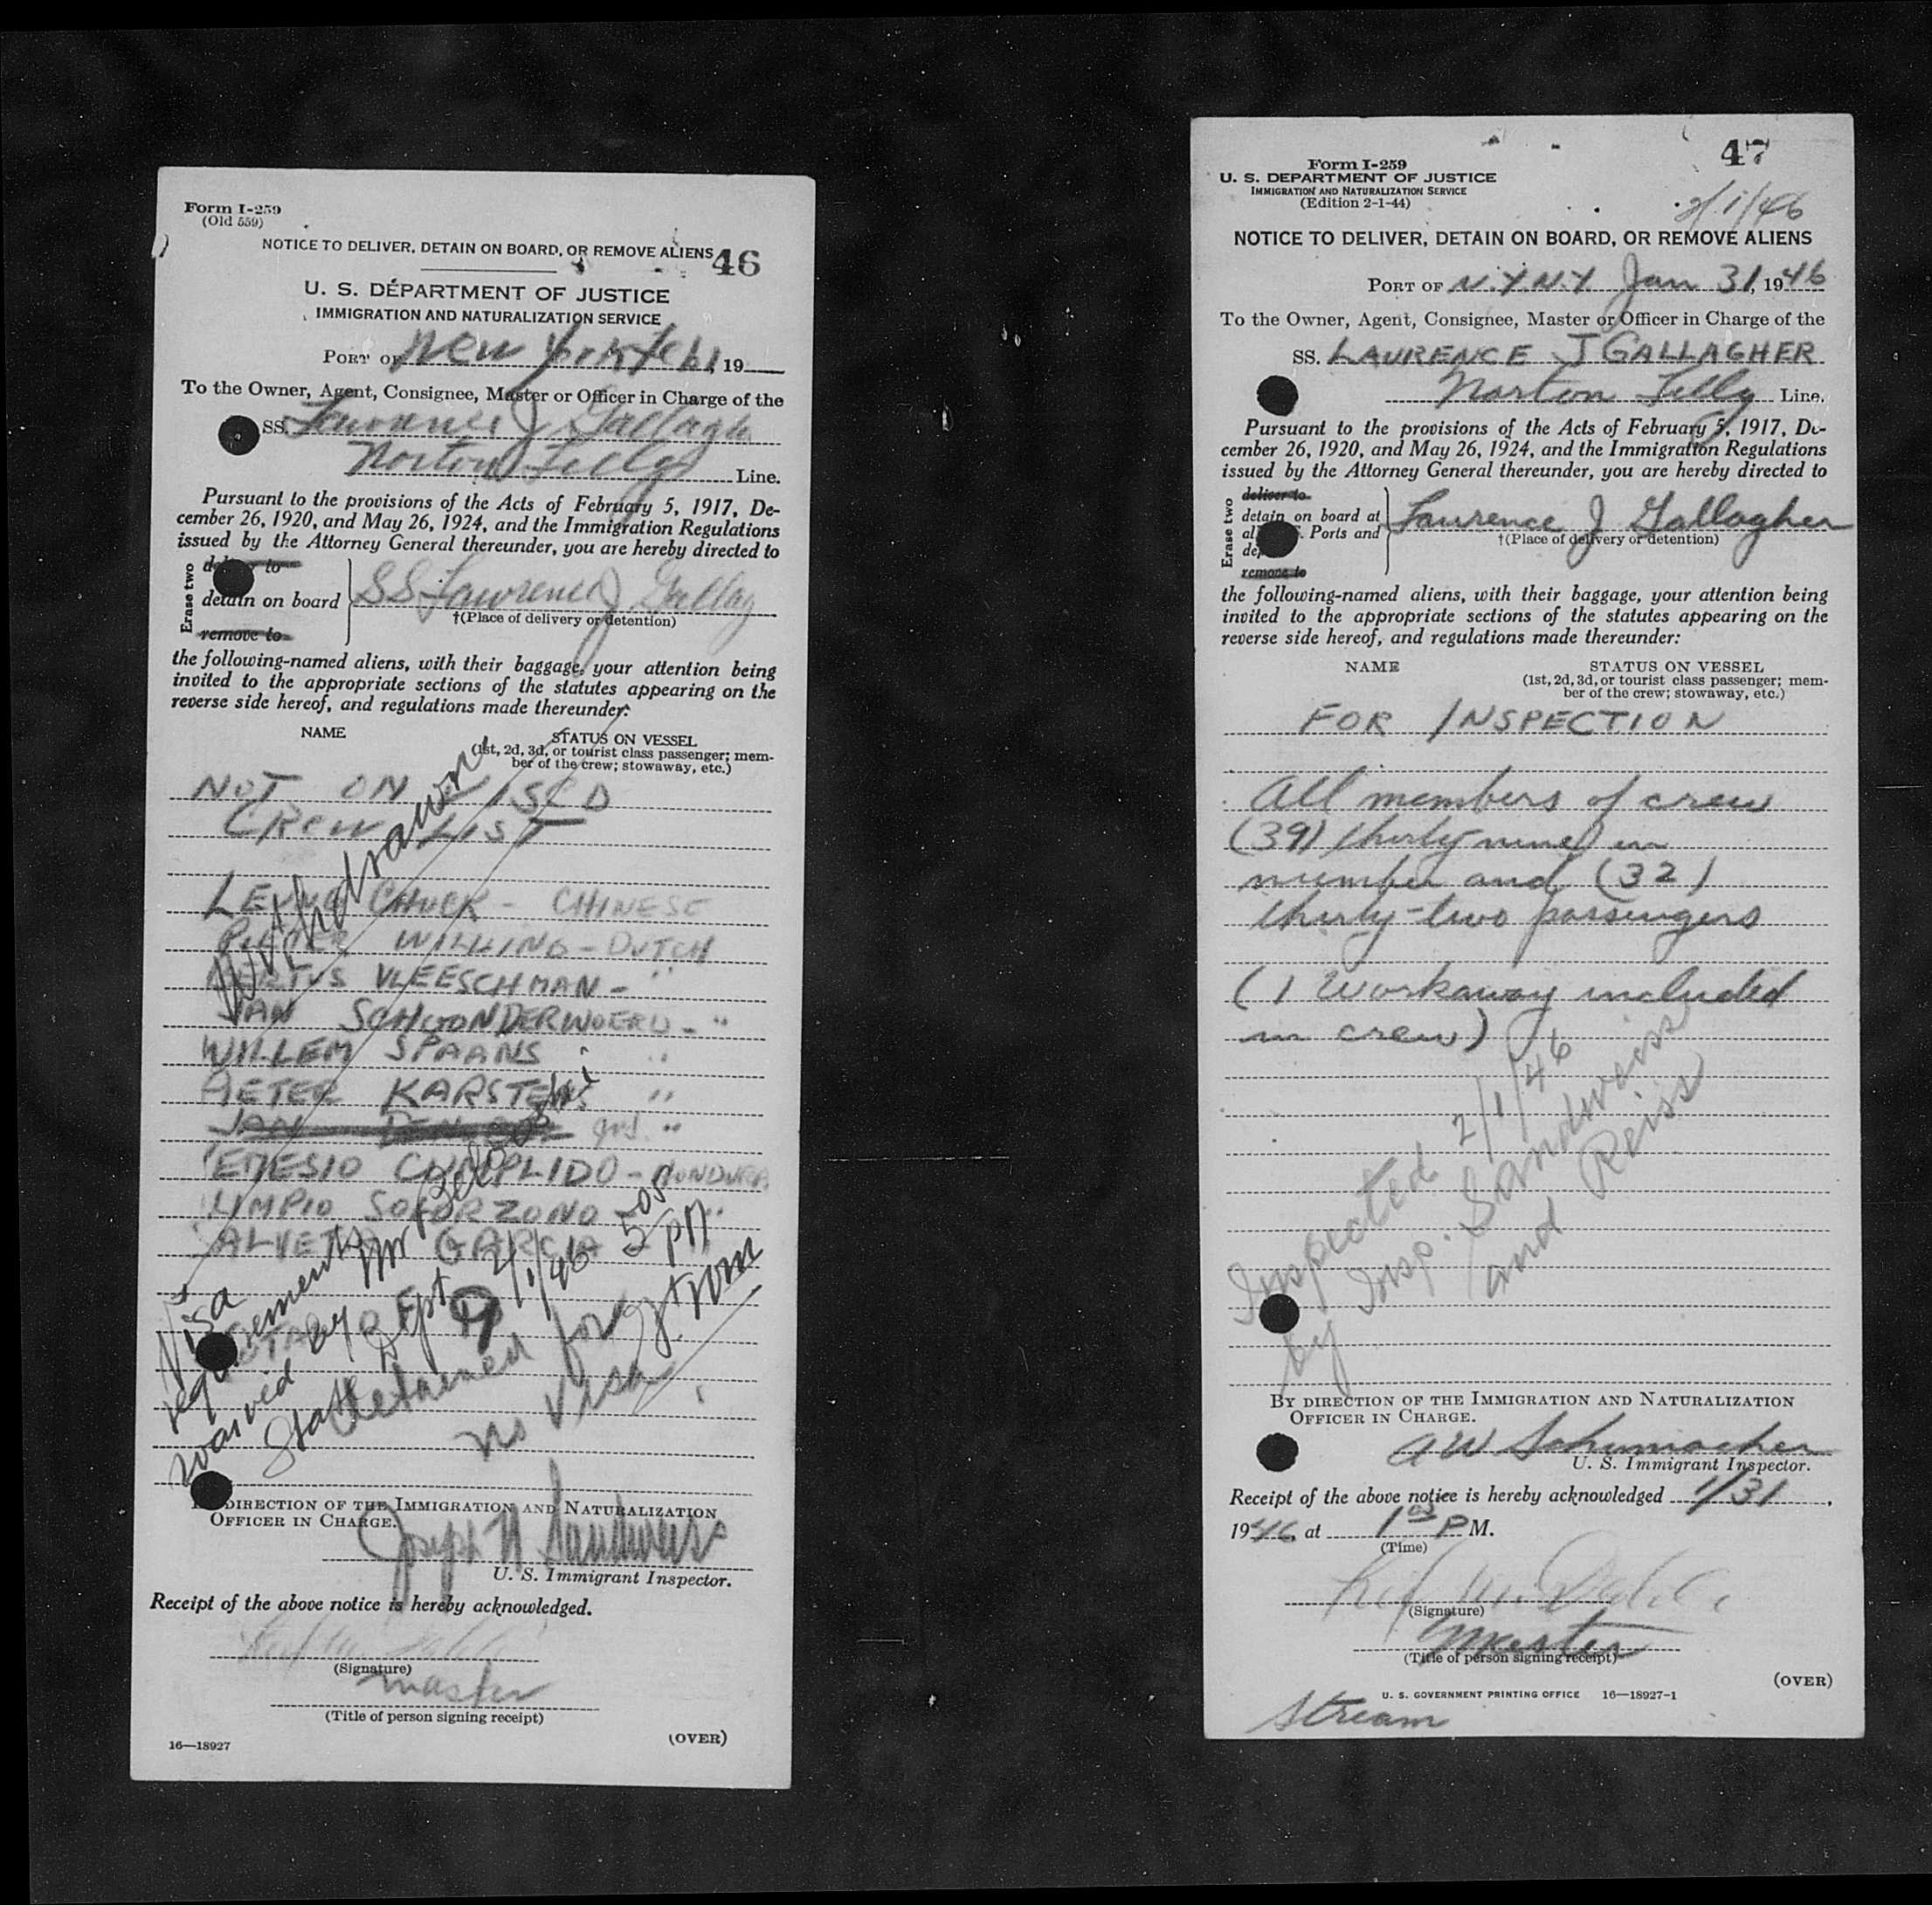 Form I-259
(Old 559)
NOTICE TO DELIVER, DETAIN ON BOARD, OR REMOVE ALIENS
46
U. S. DEPARTMENT OF JUSTICE
IMMIGRATION AND NATURALIZATION SERVICE
PORT OF New York Feb 1, 19
To the Owner, Agent, Consignee, Master or Officer in Charge of the
SS. Lawrence J Gallagh
Norton Lilly Line.
Pursuant to the provisions of the Acts of February 5, 1917, De-
cember 26, 1920, and May 26, 1924, and the Immigration Regulations
issued by the Attorney General thereunder, you are hereby directed to
Erase two
to
detain on board
remove to
SS Lawrence J Gallag
†(Place of delivery or detention)
the following-named aliens, with their baggage, your attention being
invited to the appropriate sections of the statutes appearing on the
reverse side hereof, and regulations made thereunder:
NAME
STATUS ON VESSEL
(1st, 2d, 3d, or tourist class passenger; mem-
ber of the crew; stowaway, etc.)
Withdrawn
NOT ON
CREW LIST
CHUCK - CHINESE
WILLING - DUTCH
VLEESCHMAN - "
JAN SCHOONDERWOERD - "
WILLEM SPAANS "
PIETER KARSTENS "
JAN DEN "
CUMPLIDO - HONDURA
LIMPIO SOLORZONO "
GARCIA
Visa
requirement
waived by Mr
State Dept 2/1/46 5 PM
9
detained for
no Visa
BY DIRECTION OF THE IMMIGRATION AND NATURALIZATION
OFFICER IN CHARGE.
Joseph N Sandweiss
U. S. Immigrant Inspector.
Receipt of the above notice is hereby acknowledged.
(Signature)
master
(Title of person signing receipt)
16—18927
(OVER)
Form I-259
U. S. DEPARTMENT OF JUSTICE
IMMIGRATION AND NATURALIZATION SERVICE
(Edition 2-1-44)
47
2/1/46
NOTICE TO DELIVER, DETAIN ON BOARD, OR REMOVE ALIENS
PORT OF N.Y.N.Y. Jan 31, 1946
To the Owner, Agent, Consignee, Master or Officer in Charge of the
SS. LAURENCE J GALLAGHER
Norton Lilly Line.
Pursuant to the provisions of the Acts of February 5, 1917, De-
cember 26, 1920, and May 26, 1924, and the Immigration Regulations
issued by the Attorney General thereunder, you are hereby directed to
Erase two
deliver to
detain on board at
Ports and
remove to
Laurence J Gallagher
†(Place of delivery or detention)
the following-named aliens, with their baggage, your attention being
invited to the appropriate sections of the statutes appearing on the
reverse side hereof, and regulations made thereunder:
NAME
STATUS ON VESSEL
(1st, 2d, 3d, or tourist class passenger; mem-
ber of the crew; stowaway, etc.)
FOR INSPECTION
All members of crew
(39) thirty nine in
number and (32)
thirty-two passengers
(1 Workaway included
in crew)
Inspected 2/1/46
by Insp. Sandweiss
and Reiss
BY DIRECTION OF THE IMMIGRATION AND NATURALIZATION
OFFICER IN CHARGE.
AW Schumacher
U. S. Immigrant Inspector.
Receipt of the above notice is hereby acknowledged 1/31,
1946, at 1 00 P M.
(Time)
(Signature)
Master
(Title of person signing receipt)
(OVER)
U. S. GOVERNMENT PRINTING OFFICE 16—18927-1
Stream